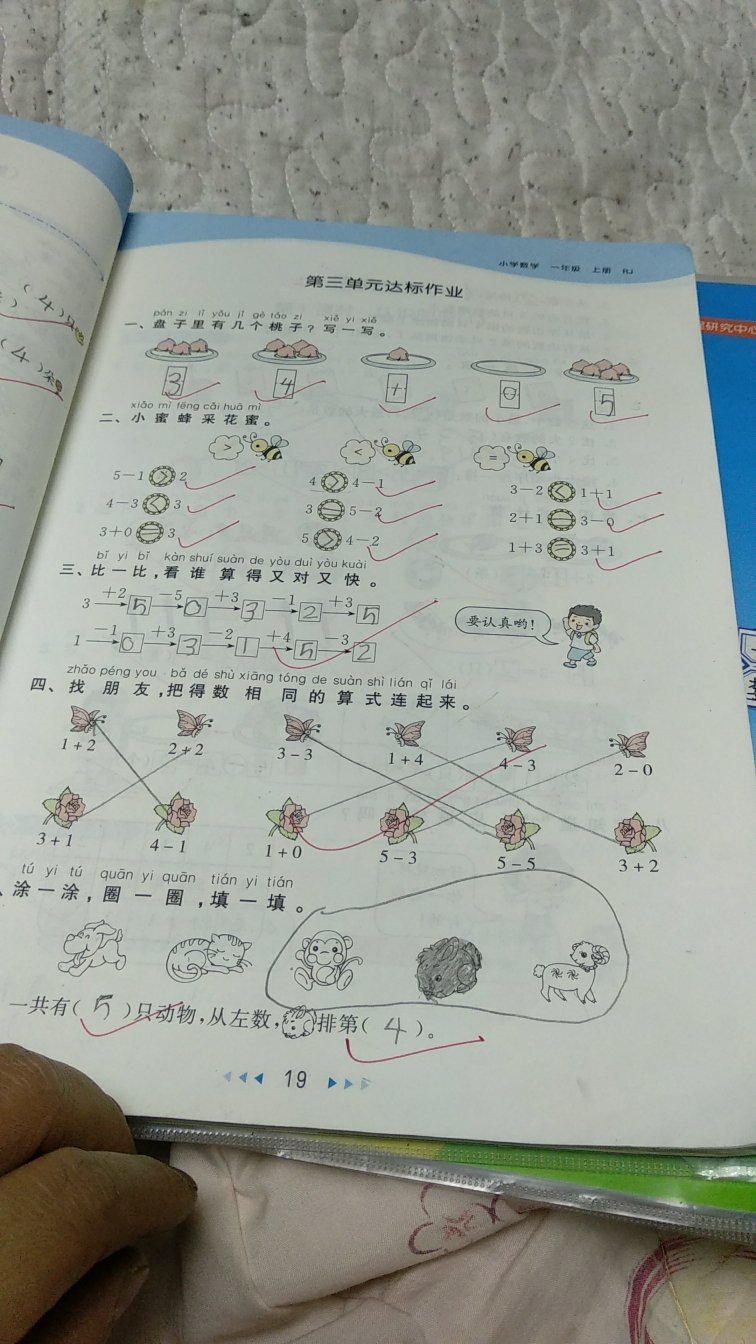 小学数学 一年级 上册 RJ
第三单元达标作业
pán zi lǐ yǒu jǐ gè táo zi xiě yi xiě
一、盘子里有几个桃子？写一写。
3 4 1 0 5
xiǎo mì fēng cǎi huā mì
二、小蜜蜂采花蜜。
> < =
5-1 > 2 4 > 4-1 3-2 < 1+1
4-3 < 3 3 = 5-2 2+1 = 3-0
3+0 = 3 5 > 4-2 1+3 = 3+1
bǐ yi bǐ kàn shuí suàn de yòu duì yòu kuài
三、比一比，看谁算得又对又快。
3 +2 5 -5 0 +3 3 -1 2 +3 5
要认真哟！
1 -1 0 +3 3 -2 1 +4 5 -3 2
zhǎo péng you bǎ dé shù xiāng tóng de suàn shì lián qǐ lái
四、找朋友，把得数相同的算式连起来。
1+2 2+2 3-3 1+4 4-3 2-0
3+1 4-1 1+0 5-3 5-5 3+2
tú yi tú quān yi quān tián yi tián
、涂一涂，圈一圈，填一填。
一共有（5）只动物，从左数，排第（4）。
19
（4）只
（4）朵
研究中心